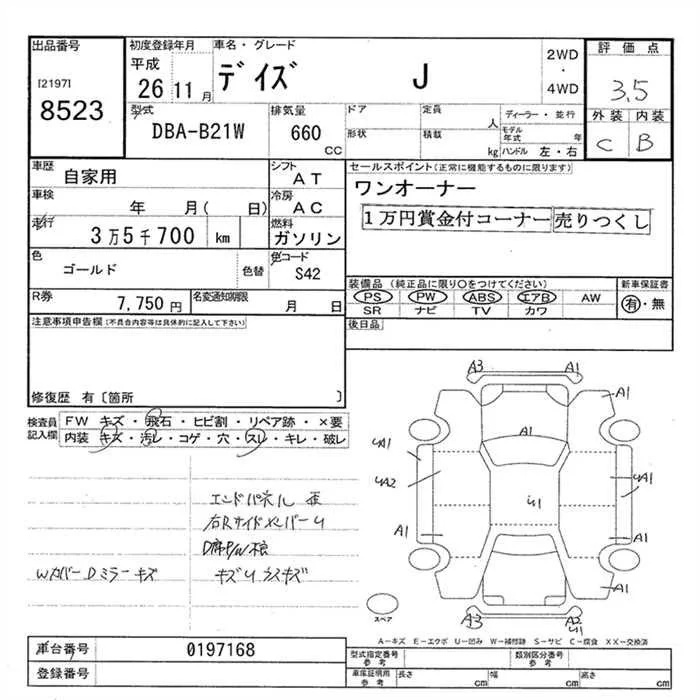 出品番号 初度登録年月 車名・グレード 評価点
[2197] 平成 26 11月 デイズ J 2WD・4WD 3.5
8523 外装 内装
型式 DBA-B21W 排気量 660 CC ドア 定員 人 ディーラー・並行 C B
形状 積載 kg モデル年式 年 ハンドル 左・右
車歴 自家用 シフト AT セールスポイント(正常に機能するものに限ります)
車検 年 月( 日) 冷房 AC ワンオーナー
走行 3万5千700 km 燃料 ガソリン 1万円賞金付コーナー 売りつくし
色 ゴールド 色替 色コード S42
装備品(純正品に限り○をつけてください) 新車保証書
R券 7,750円 名変通知期限 月 日 PS PW ABS エアB AW 有・無
SR ナビ TV カワ
注意事項申告欄(不具合内容等は具体的に記入して下さい) 後日品
修復歴 有〔箇所 〕
検査員記入欄 FW キズ・飛石・ヒビ割・リペア跡・×要
内装 キズ・汚レ・コゲ・穴・スレ・キレ・破レ
エンドパネル
右Rサイドメンバーリ
D席P/W
Wカバー Dミラー キズ キズ ウスキズ
A3 A1
A1
A1
A1 A1
A2 A1
A1 A1
A1
A3 A2
スペア
A−キズ E−エクボ U−凹み W−補修跡 S−サビ C−腐食 XX−交換済
車台番号 0197168 型式指定番号 参考 類別区分番号 参考
登録番号 車庫証明用 参考 長さ cm 幅 cm 高さ cm